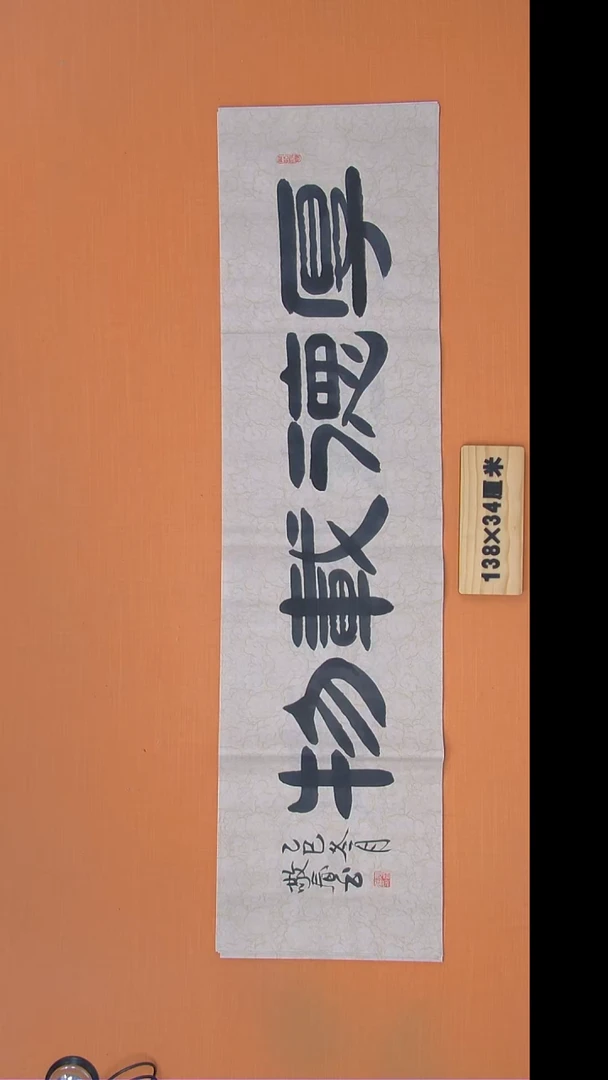 厚德載物
乙巳冬月
敬
書
138×34厘米